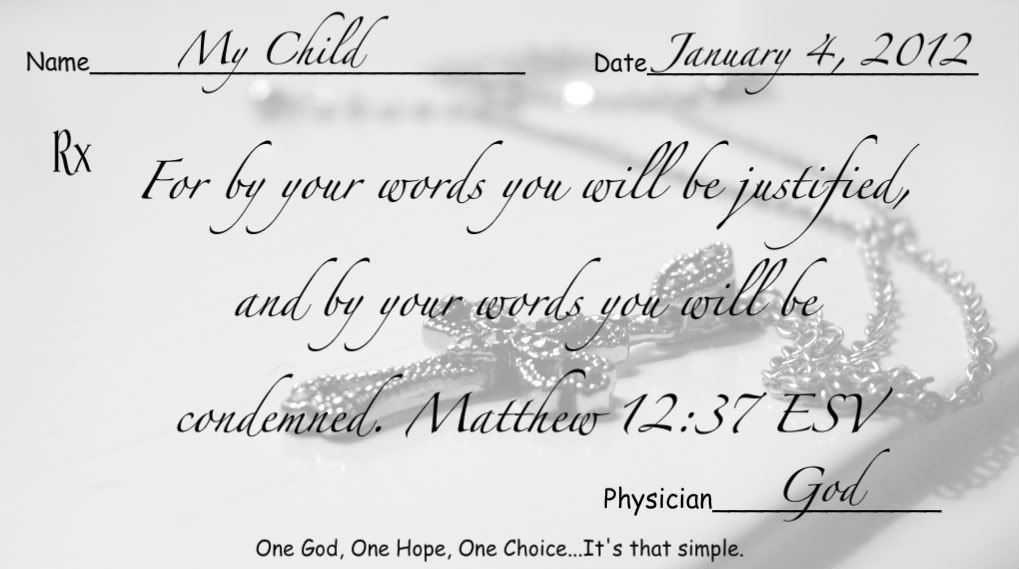 Name My Child Date January 4, 2012
Rx
For by your words you will be justified,
and by your words you will be
condemned. Matthew 12:37 ESV
Physician God
One God, One Hope, One Choice...It's that simple.